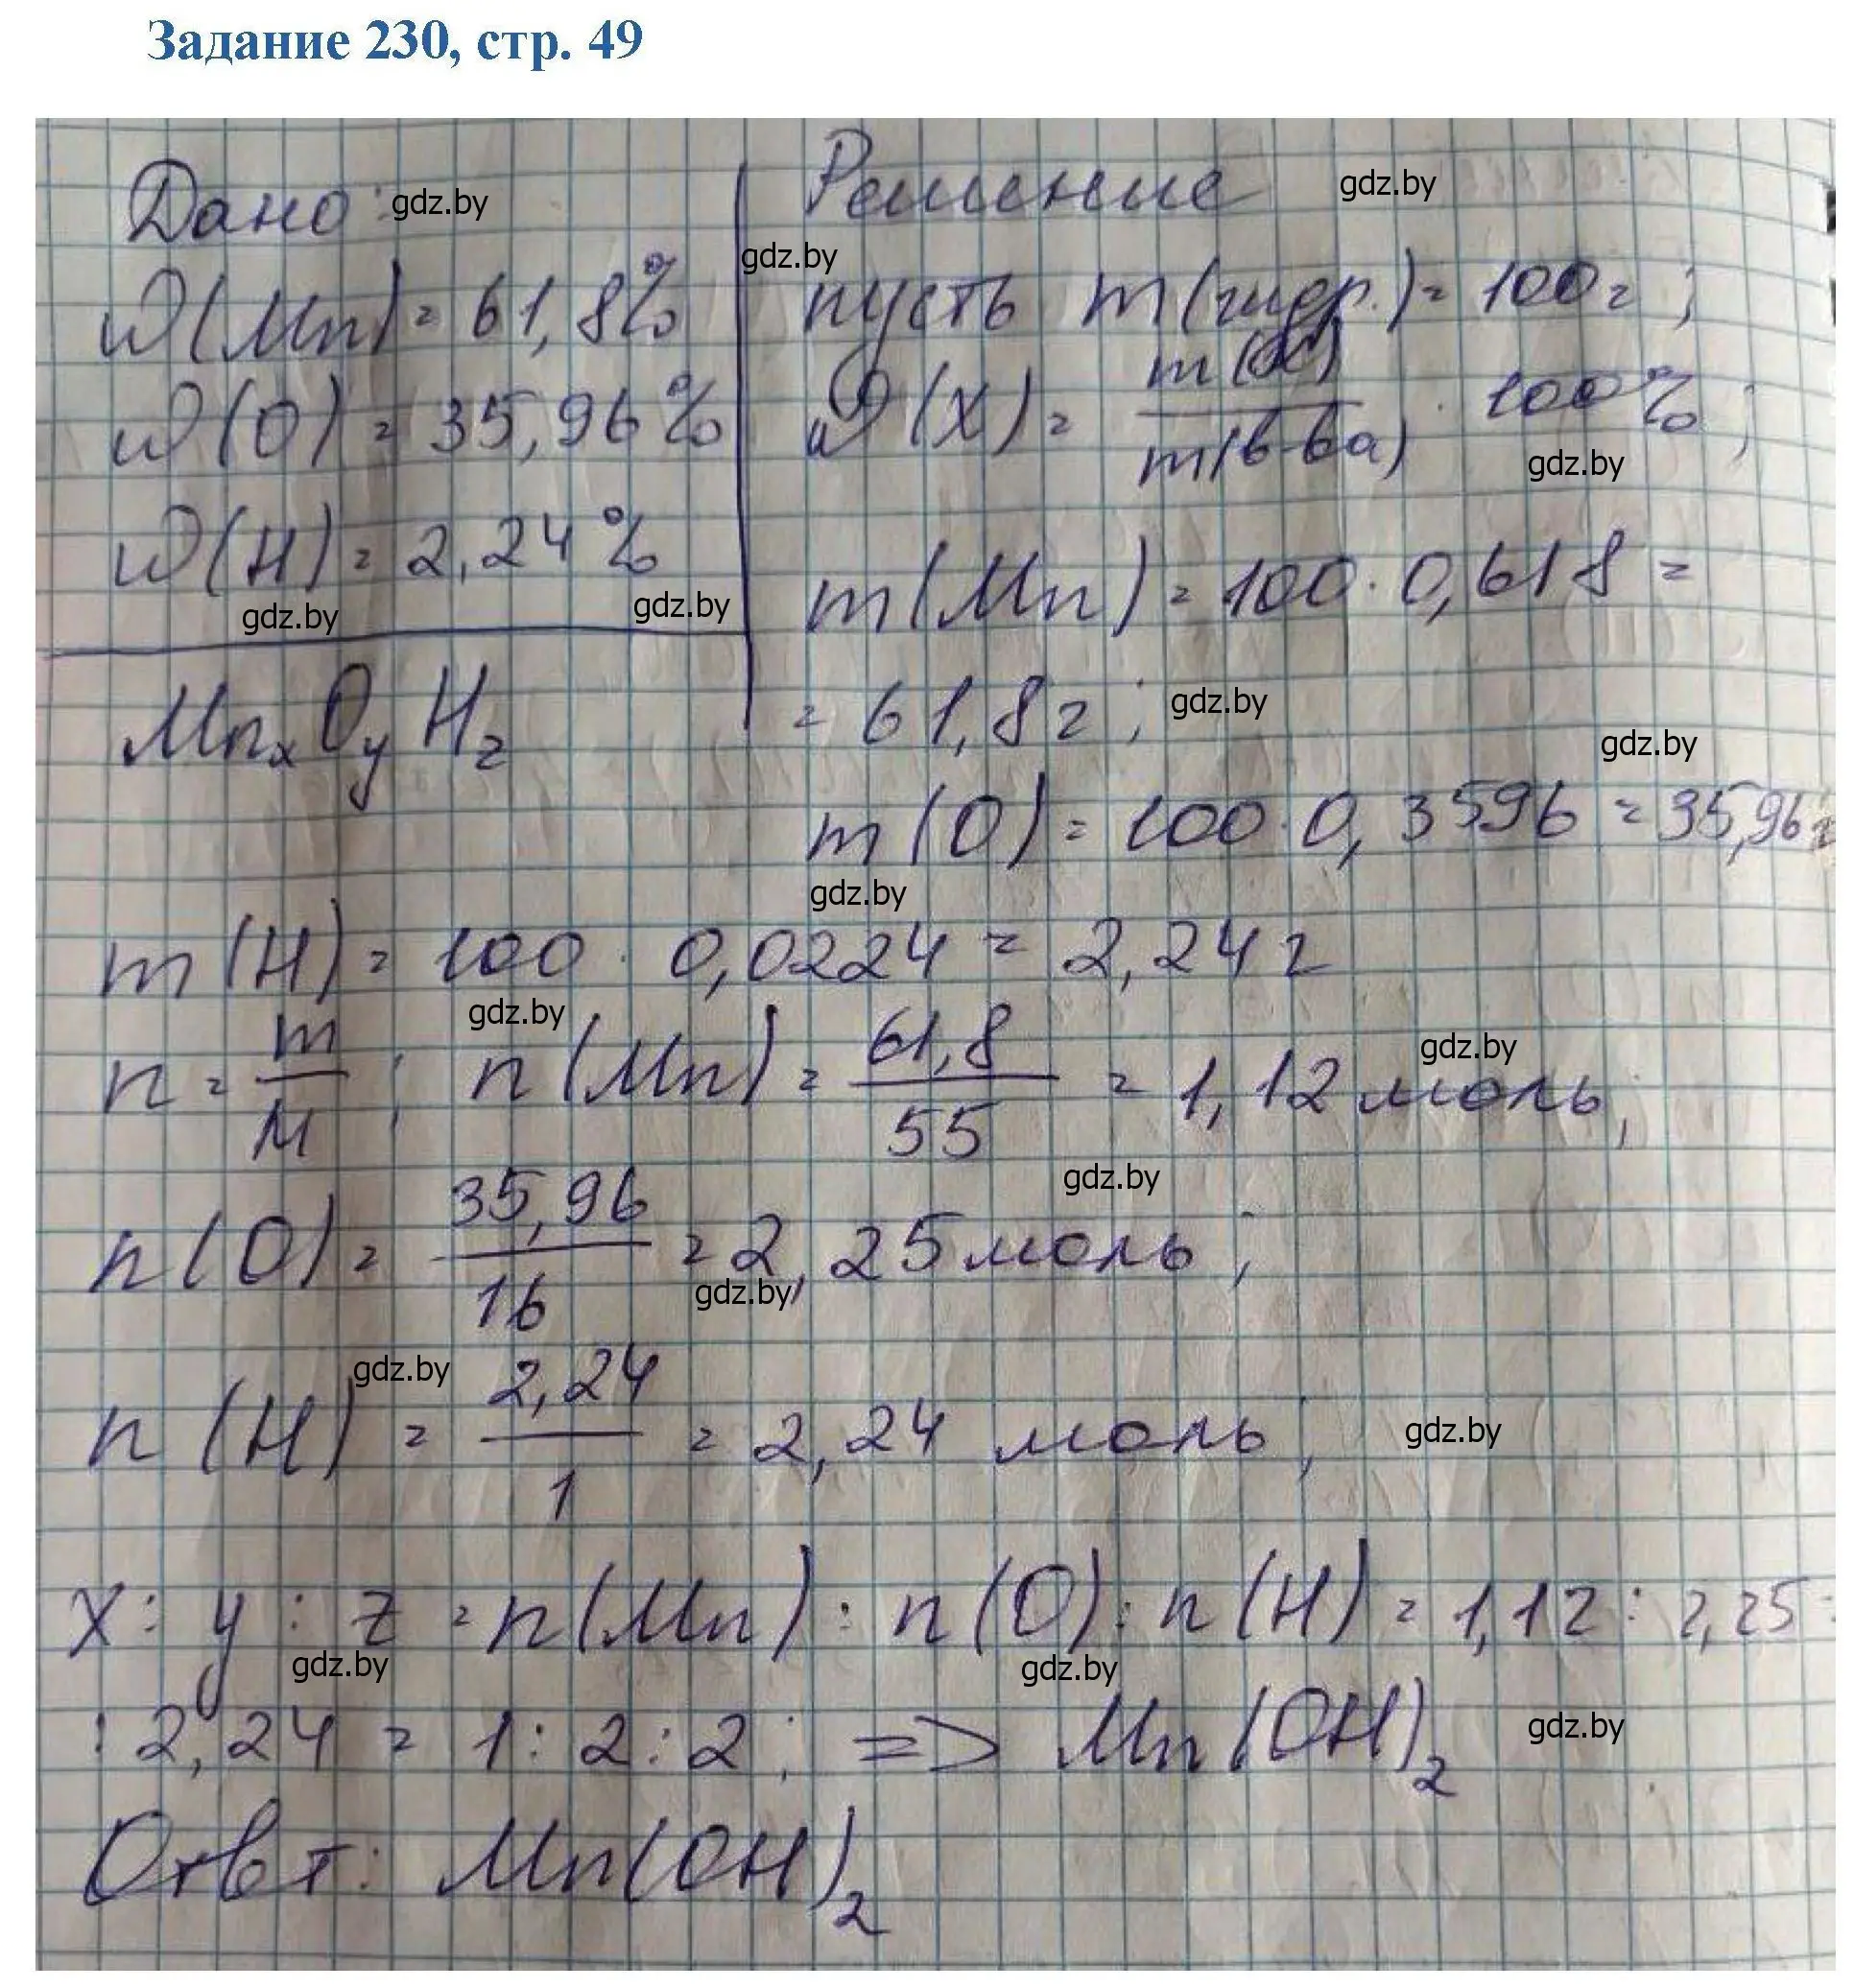 Задание 230, стр. 49
Дано: gdz.by
Решение gdz.by
gdz.by
W(Mn) = 61,8%
пусть m(гидр.) = 100 г;
W(O) = 35,96%
W(X) = m(X)/m(в-ва) · 100%;
gdz.by
W(H) = 2,24%
gdz.by gdz.by
m(Mn) = 100 · 0,618 =
MnxOyHz
= 61,8 г; gdz.by
gdz.by
m(O) = 100 · 0,3596 = 35,96 г
gdz.by
m(H) = 100 · 0,0224 = 2,24 г
gdz.by
n = m/M; n(Mn) = 61,8/55 = 1,12 моль;
gdz.by
gdz.by
n(O) = 35,96/16 = 2,25 моль;
gdz.by
gdz.by
n(H) = 2,24/1 = 2,24 моль;
gdz.by
X : y : z = n(Mn) : n(O) : n(H) = 1,12 : 2,25 :
gdz.by gdz.by
: 2,24 = 1 : 2 : 2; => Mn(OH)2
gdz.by
Отвт: Mn(OH)2